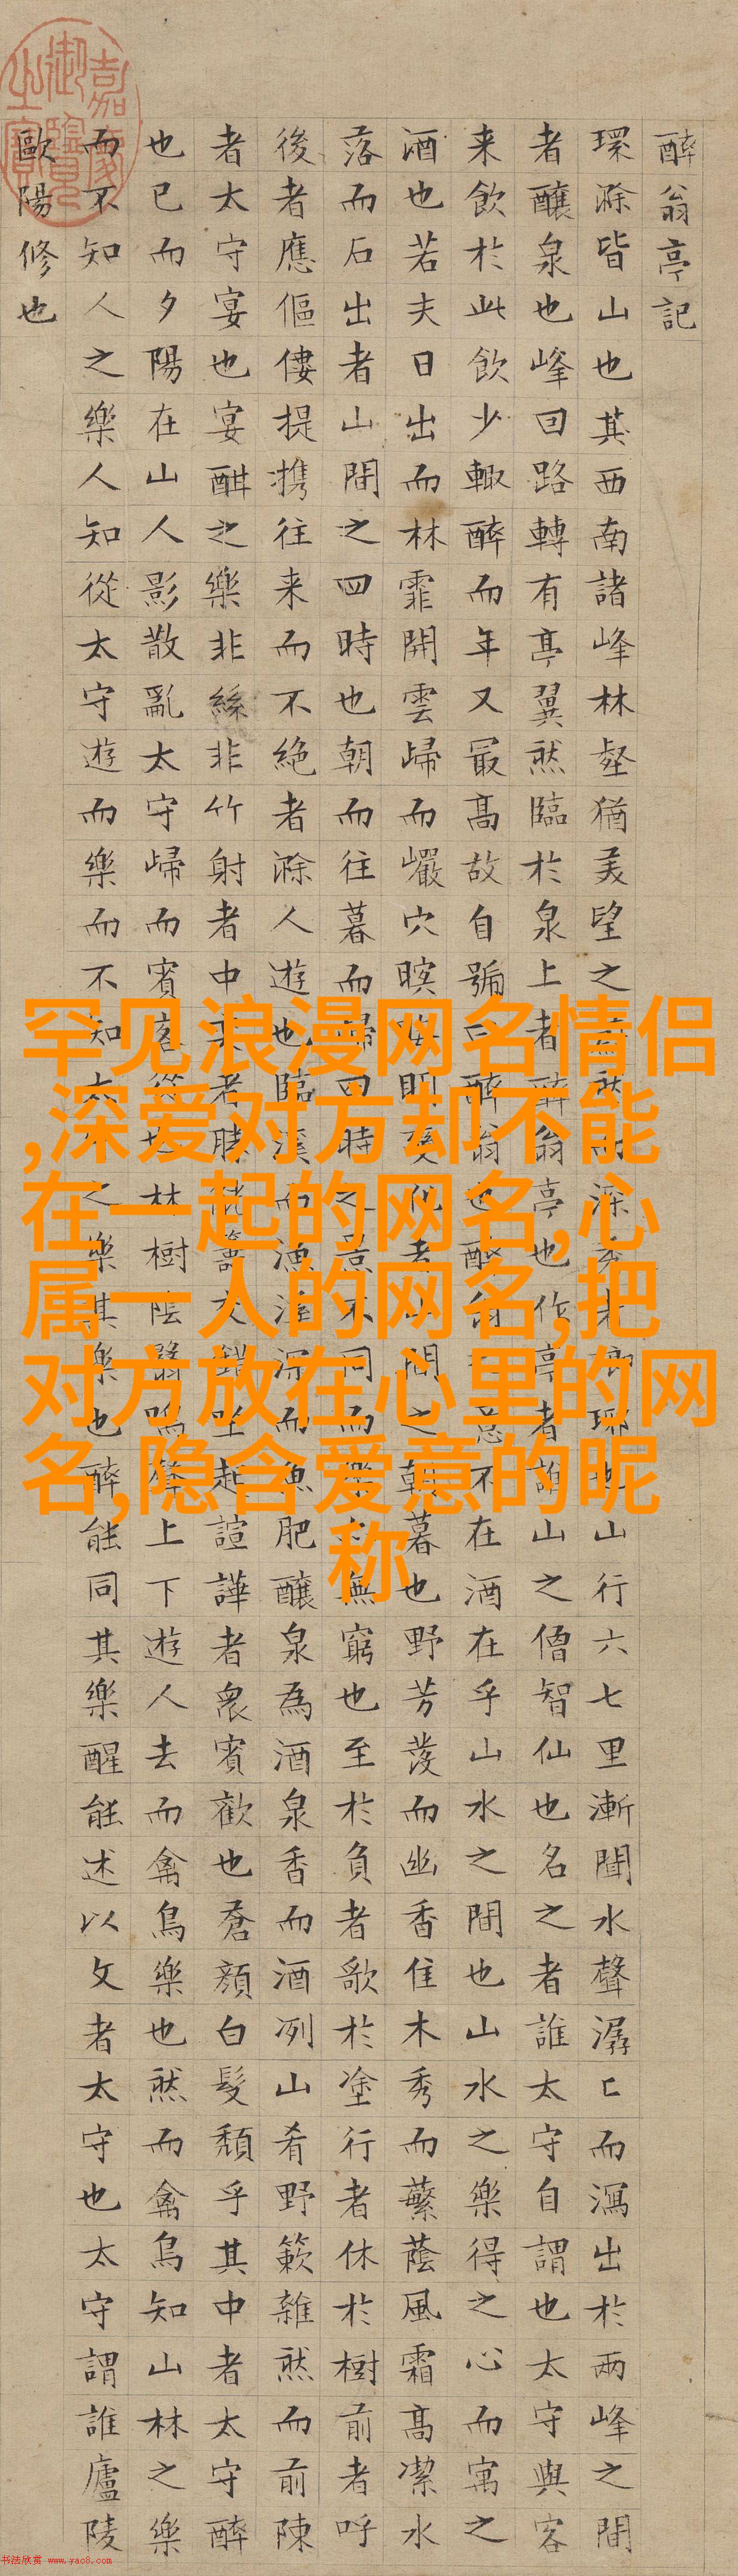 醉翁亭記
環滁皆山也其西南諸峰林壑猶美望之蔚然而深秀者瑯琊也山行六七里漸聞水聲潺匕而瀉出於兩峰之間
者釀泉也峰回路轉有亭翼然臨於泉上者醉翁亭也作亭者誰山之僧智仙也名之者誰太守自謂也太守與客
来飲於此飲少輙醉而年又最高故自號曰醉翁也醉翁之意不在酒在乎山水之間也山水之樂得之心而寓之
酒也若夫日出而林霏開雲歸而巖穴暝晦明變化者山間之朝暮也野芳發而幽香佳木秀而蘩蔭風霜高潔水
落而石出者山間之四時也朝而往暮而歸四時之景不同而樂亦無窮也至於負者歌於塗行者休於樹前者呼
後者應傴僂提携往来而不絶者滁人遊也臨溪而漁溪深而魚肥釀泉為酒泉香而酒冽山肴野簌雜然而前陳
者太守宴也宴酣之樂非絲非竹射者中奕者勝觥籌交錯坐起諠譁者衆賓歡也蒼顔白髮頹乎其中者太守醉
也已而夕陽在山人影散亂太守歸而賓客從也林樹陰翳鳴聲上下遊人去而禽鳥樂也然而禽鳥知山林之樂
而不知人之樂人知從太守遊而樂而不知太守之樂其樂也醉能同其樂醒能述以文者太守也太守謂誰廬陵
歐陽修也
嘉慶御覽之寶
罕见浪漫网名情侣
,深爱对方却不能
在一起的网名,心
属一人的网名,把
对方放在心里的网
名,隐含爱意的昵
称
书法欣赏 www.yac8.com